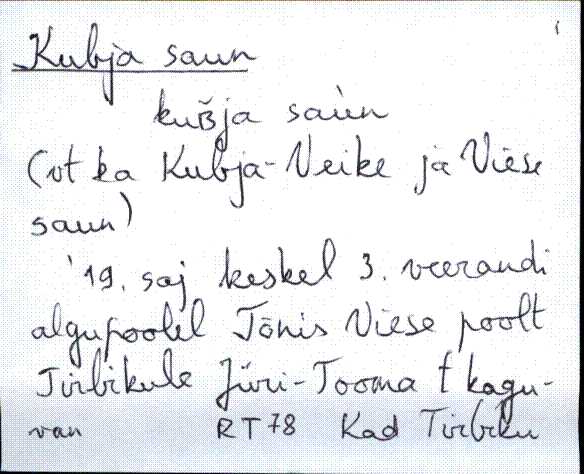 Kubja saun
kuʙja saùn
(vt ka Kubja-Veike ja Viese
saun)
'19. saj keskel 3. veerandi
algupoolel Tõnis Viese poolt
Tirbikule Jüri-Tooma t kagu-
van RT78 Kad Tirbiku